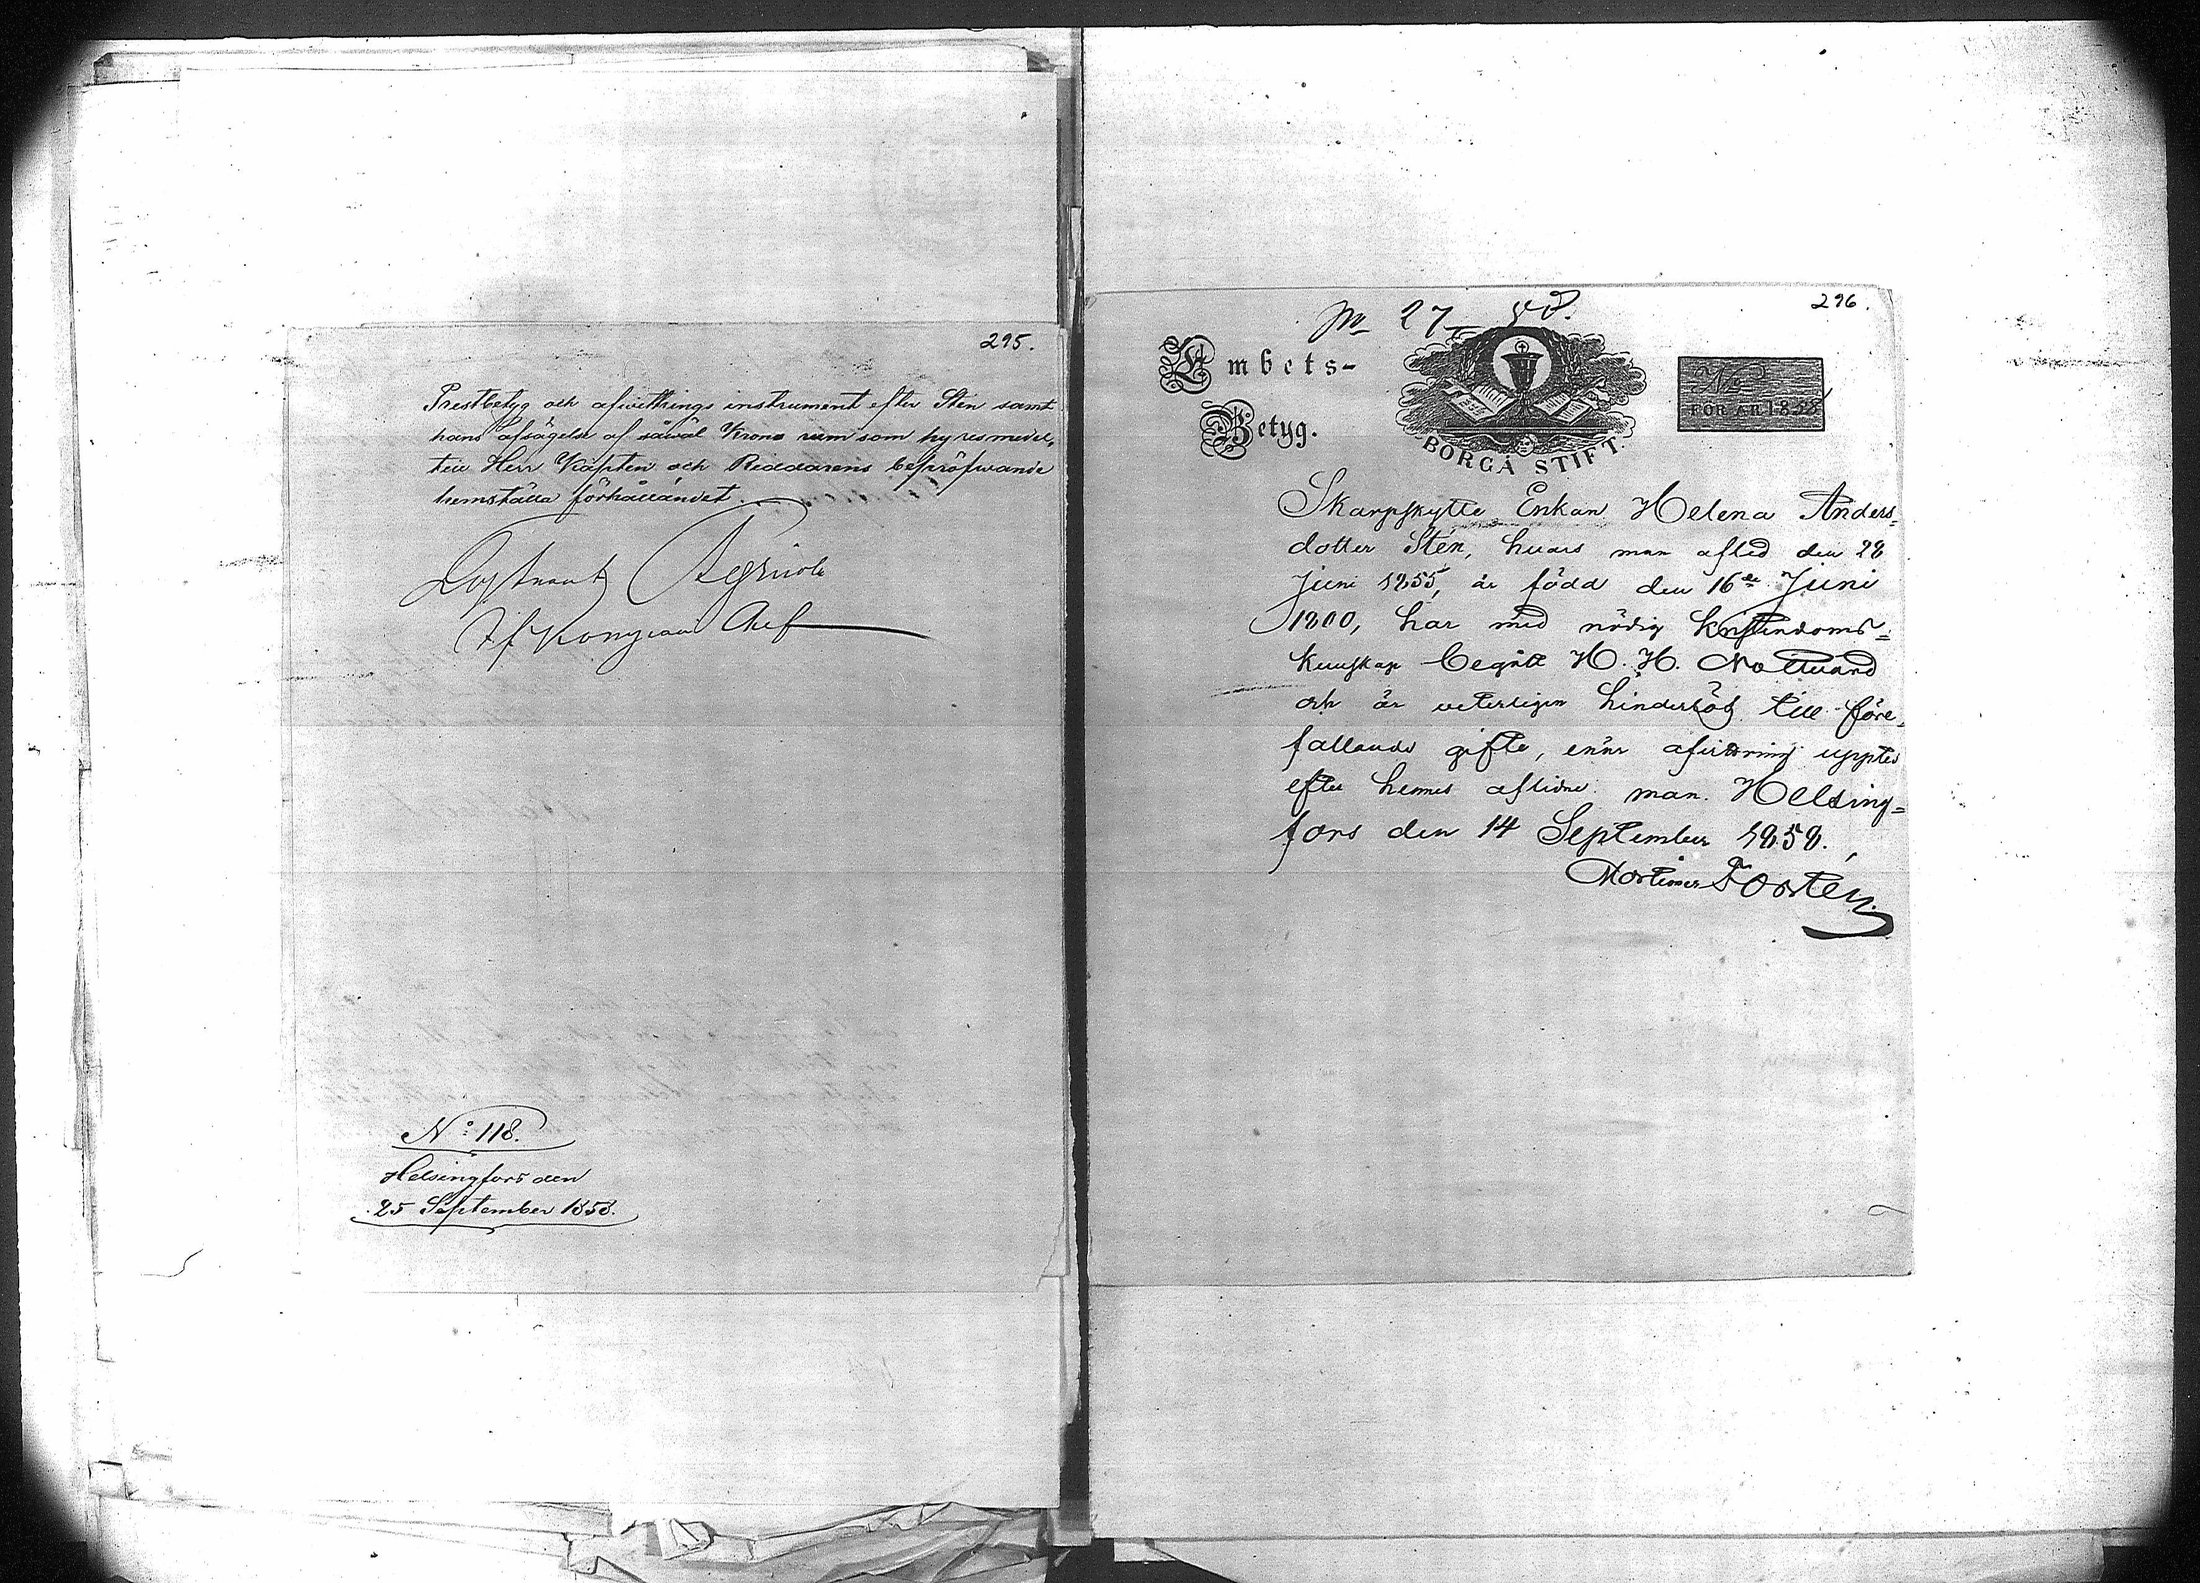 295.
Prestbetyg och afwittrings instrument efter Sten samt
hans afsägelse af såwäl Krono rum som hyresmedel,
till Herr Kapten och Riddarens bepröfwande
hemställa förhållandet.
Löjtnant Agricola
Kompani Chef
No 118.
Helsingfors den
25 September 1858.
296.
No 27
Embets-
Betyg.
BORGÅ STIFT.
No
FÖR ÅR 1858
Skarpskytte Enkan Helena Anders=
dotter Sten, hvars man afled den 28
Juni 1855, är född den 16de Juni
1800, har med nödig kristendoms=
kunskap begått H. H. Nattvard
och är veterligen hinderlös till före,
fallande gifte, enär afvittring upptes
efter hennes aflidne man. Helsing=
fors den 14 September 1858.